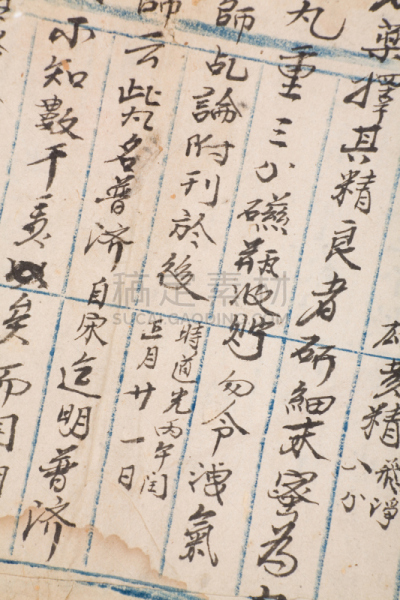 黄精飛淨
八分
藥擇其精良者研細末蜜為
丸重三分礠瓶收貯勿令洩氣
師乩論附刊於後時道光丙午閏
五月廿一日
師云此丸名普济自宋迄明普济
不知數千矣而
稿定素材
SUCAI.GAODING.COM